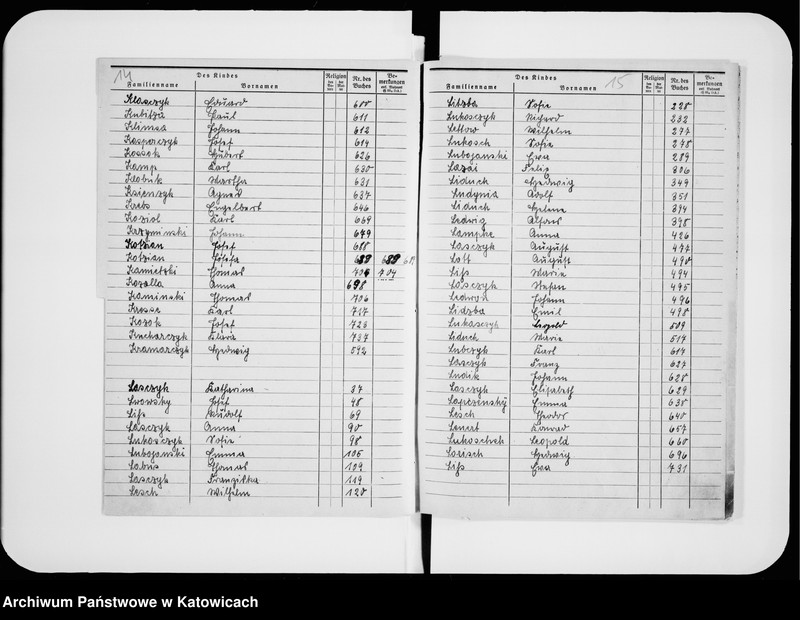 14
Des Kindes
Religion
Nr. des Buches
Bemerkungen
Familienname
Vornamen
Klasczyk Eduard 600
Kubitza Paul 611
Klimsa Johann 612
Kasparczyk Josef 614
Kossok Hubert 626
Kamp Karl 630
Kdobuk Martha 631
Ksienzyk Agnes 637
Krebs Engelbert 646
Koziol Karl 669
Krzyminski Johann 679
Kotzian Josef 688
Kotzian Josefa 689
Kamietzki Thomas 704
Kozalla Anna 698
Kaminski Thomas 706
Krosse Karl 717
Kozok Josef 723
Kucharczyk Klara 737
Kramarczyk Hedwig 592
Lasczyk Katharina 37
Lwowsky Josef 48
Liss Rudolf 69
Lasczyk Anna 90
Lukosczyk Sofie 98
Lubojanski Emma 105
Labus Thomas 109
Lasczyk Franziska 119
Lesch Wilhelm 120
15
Des Kindes
Religion
Nr. des Buches
Bemerkungen
Familienname
Vornamen
Letzba Sofie 228
Lukosczyk Richard 232
Lettow Wilhelm 277
Lukosch Sofie 278
Lubojanski Ewa 289
Lazai Felix 306
Liduch Hedwig 349
Ludynia Adolf 351
Liduch Helene 394
Ledwig Alfred 398
Lampke Anna 426
Lasczyk August 477
Lott August 490
Liss Marie 494
Lasczyk Stefan 495
Ledwoh Johann 496
Lidzba Emil 498
Lukasczyk Leopold 509
Liduch Marie 514
Lubczyk Karl 614
Lasczyk Franz 627
Ludik Johann 628
Lasczyk Elisabeth 629
Lapczinsky Emma 638
Lesch Theodor 640
Lenert Konrad 657
Lukoschek Leopold 660
Lorisch Hedwig 696
Liss Ewa 731
Archiwum Państwowe w Katowicach